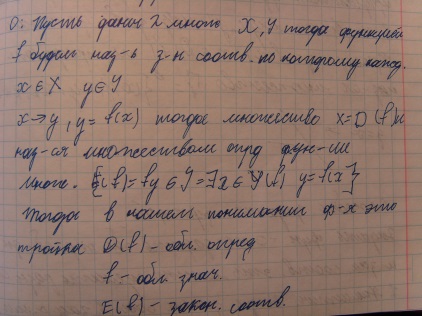 О: Пусть даны 2 множ. X, Y тогда функцией
f будем наз-ь з-н соотв. по которому кажд.
x ∈ X y ∈ Y
x→y, y = f(x) тогда множество X=D(f)
наз-ся множеством опрд фун-ии
множ. E(f)={y ∈ Y=∃x ∈ Y(f) y=f(x)}
Тогда в нашем понимании ф-я это
тройка D(f) - обл. опред
f - обл. знач.
E(f) - закон. соотв.